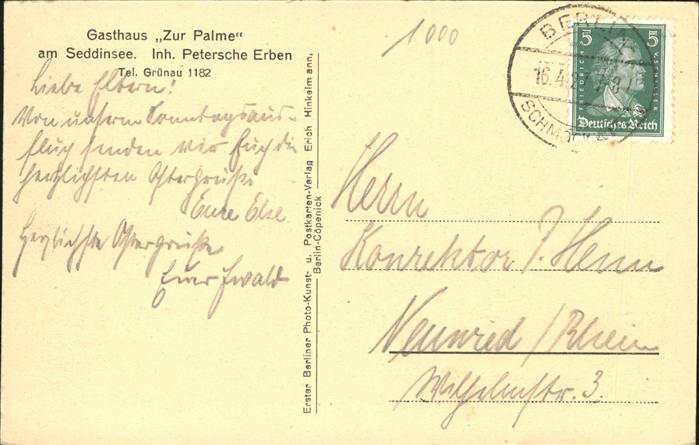 Gasthaus „Zur Palme“
am Seddinsee. Inh. Petersche Erben
Tel. Grünau 1182
Liebe Eltern!
Von unserm Sonntagsaus-
flug senden wir Euch die
herzlichsten Ostergrüße
Eure Else.
Herzlichste Ostergrüße
Euer Ewald
Erster Berliner Photo-Kunst- u. Postkarten-Verlag Erich Hinkelmann,
Berlin-Cöpenick
1000
BERLIN
16.4.
SCHMÖCKWITZ
5 5
FRIEDRICH SCHILLER
Deutsches Reich
Herrn
Konrektor J. Henn
Neuwied / Rhein
Wilhelmstr. 3.